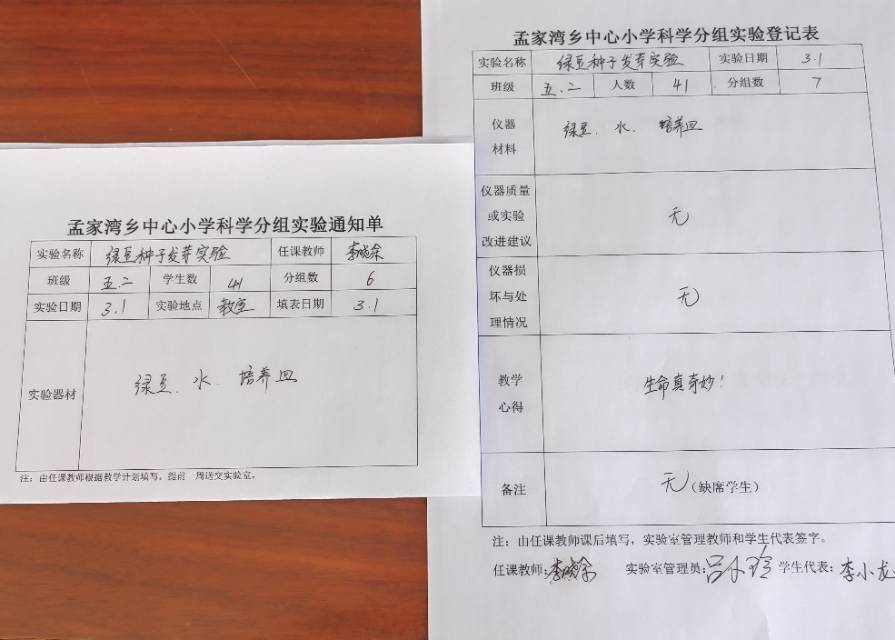 孟家湾乡中心小学科学分组实验通知单
实验名称 绿豆种子发芽实验 任课教师
班级 五.二 学生数 41 分组数 6
实验日期 3.1 实验地点 教室 填表日期 3.1
实验器材 绿豆、水 培养皿
注：由任课教师根据教学计划填写，提前一周送交实验室。
孟家湾乡中心小学科学分组实验登记表
实验名称 绿豆种子发芽实验 实验日期 3.1
班级 五.二 人数 41 分组数 7
仪器材料 绿豆、水、培养皿
仪器质量或实验改进建议 无
仪器损坏与处理情况 无
教学心得 生命真奇妙！
备注 无（缺席学生）
注：由任课教师课后填写，实验室管理教师和学生代表签字。
任课教师： 实验室管理员： 学生代表：李小龙